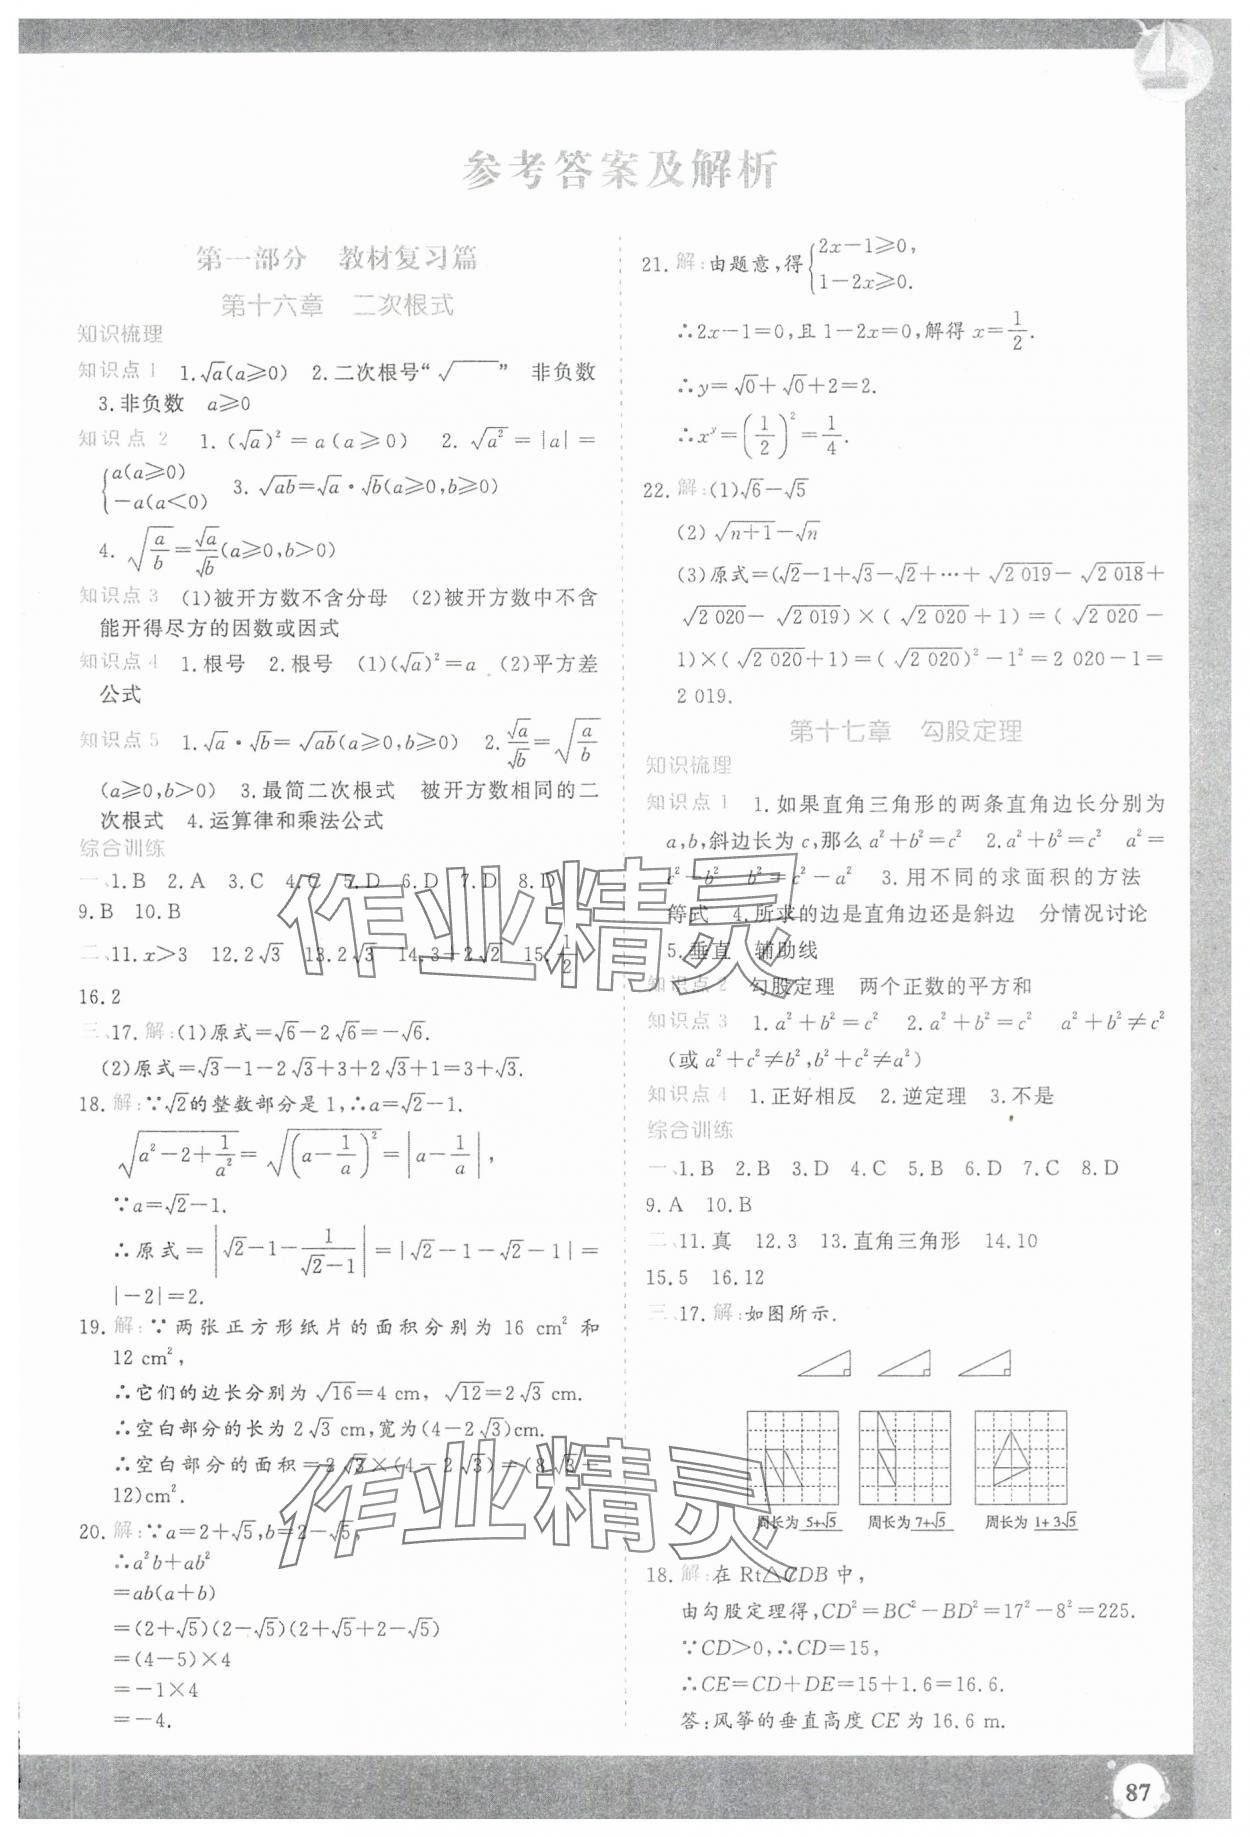 参考答案及解析
第一部分　教材复习篇
第十六章　二次根式
知识梳理
知识点 1　1.√a(a≥0)　2.二次根号“√‾‾”　非负数
3.非负数　a≥0
知识点 2　1.(√a)²=a(a≥0)　2.√a²=|a|=
{a(a≥0)
－a(a<0)　3.√ab=√a·√b(a≥0,b≥0)
4.√(a/b)=√a/√b(a≥0,b>0)
知识点 3　(1)被开方数不含分母　(2)被开方数中不含
能开得尽方的因数或因式
知识点 4　1.根号　2.根号　(1)(√a)²=a　(2)平方差
公式
知识点 5　1.√a·√b=√ab(a≥0,b≥0)　2.√a/√b=√(a/b)
(a≥0,b>0)　3.最简二次根式　被开方数相同的二
次根式　4.运算律和乘法公式
综合训练
一、1.B　2.A　3.C　4.C　5.D　6.D　7.D　8.D
9.B　10.B
二、11.x>3　12.2√3　13.2√3　14.3+2√2　15.1/2
16.2
三、17.解:(1)原式=√6－2√6=－√6.
(2)原式=√3－1－2√3+3+2√3+1=3+√3.
18.解:∵√2的整数部分是1,∴a=√2－1.
√(a²－2+1/a²)=√((a－1/a)²)=|a－1/a|,
∵a=√2－1.
∴原式=|√2－1－1/(√2－1)|=|√2－1－√2－1|=
|－2|=2.
19.解:∵两张正方形纸片的面积分别为 16 cm² 和
12 cm²,
∴它们的边长分别为√16=4 cm, √12=2√3 cm.
∴空白部分的长为2√3 cm,宽为(4－2√3)cm.
∴空白部分的面积=2√3×(4－2√3)=(8√3－
12)cm².
20.解:∵a=2+√5,b=2－√5,
∴a²b+ab²
=ab(a+b)
=(2+√5)(2－√5)(2+√5+2－√5)
=(4－5)×4
=－1×4
=－4.
21.解:由题意,得{2x－1≥0,
1－2x≥0.
∴2x－1=0,且1－2x=0,解得x=1/2.
∴y=√0+√0+2=2.
∴xʸ=(1/2)²=1/4.
22.解:(1)√6－√5
(2)√(n+1)－√n
(3)原式=(√2－1+√3－√2+…+√2 019－√2 018+
√2 020－√2 019)×(√2 020+1)=(√2 020－
1)×(√2 020+1)=(√2 020)²－1²=2 020－1=
2 019.
第十七章　勾股定理
知识梳理
知识点 1　1.如果直角三角形的两条直角边长分别为
a,b,斜边长为c,那么a²+b²=c²　2.a²+b²=c²　a²=
c²－b²　b²=c²－a²　3.用不同的求面积的方法
等式　4.所求的边是直角边还是斜边　分情况讨论
5.垂直　辅助线
知识点 2　勾股定理　两个正数的平方和
知识点 3　1.a²+b²=c²　2.a²+b²=c²　a²+b²≠c²
(或a²+c²≠b²,b²+c²≠a²)
知识点 4　1.正好相反　2.逆定理　3.不是
综合训练
一、1.B　2.B　3.D　4.C　5.B　6.D　7.C　8.D
9.A　10.B
二、11.真　12.3　13.直角三角形　14.10
15.5　16.12
三、17.解:如图所示.
周长为 5+√5　周长为 7+√5　周长为 1+3√5
18.解:在Rt△CDB中,
由勾股定理得,CD²=BC²－BD²=17²－8²=225.
∵CD>0,∴CD=15,
∴CE=CD+DE=15+1.6=16.6.
答:风筝的垂直高度CE为16.6 m.
作业精灵
作业精灵
87